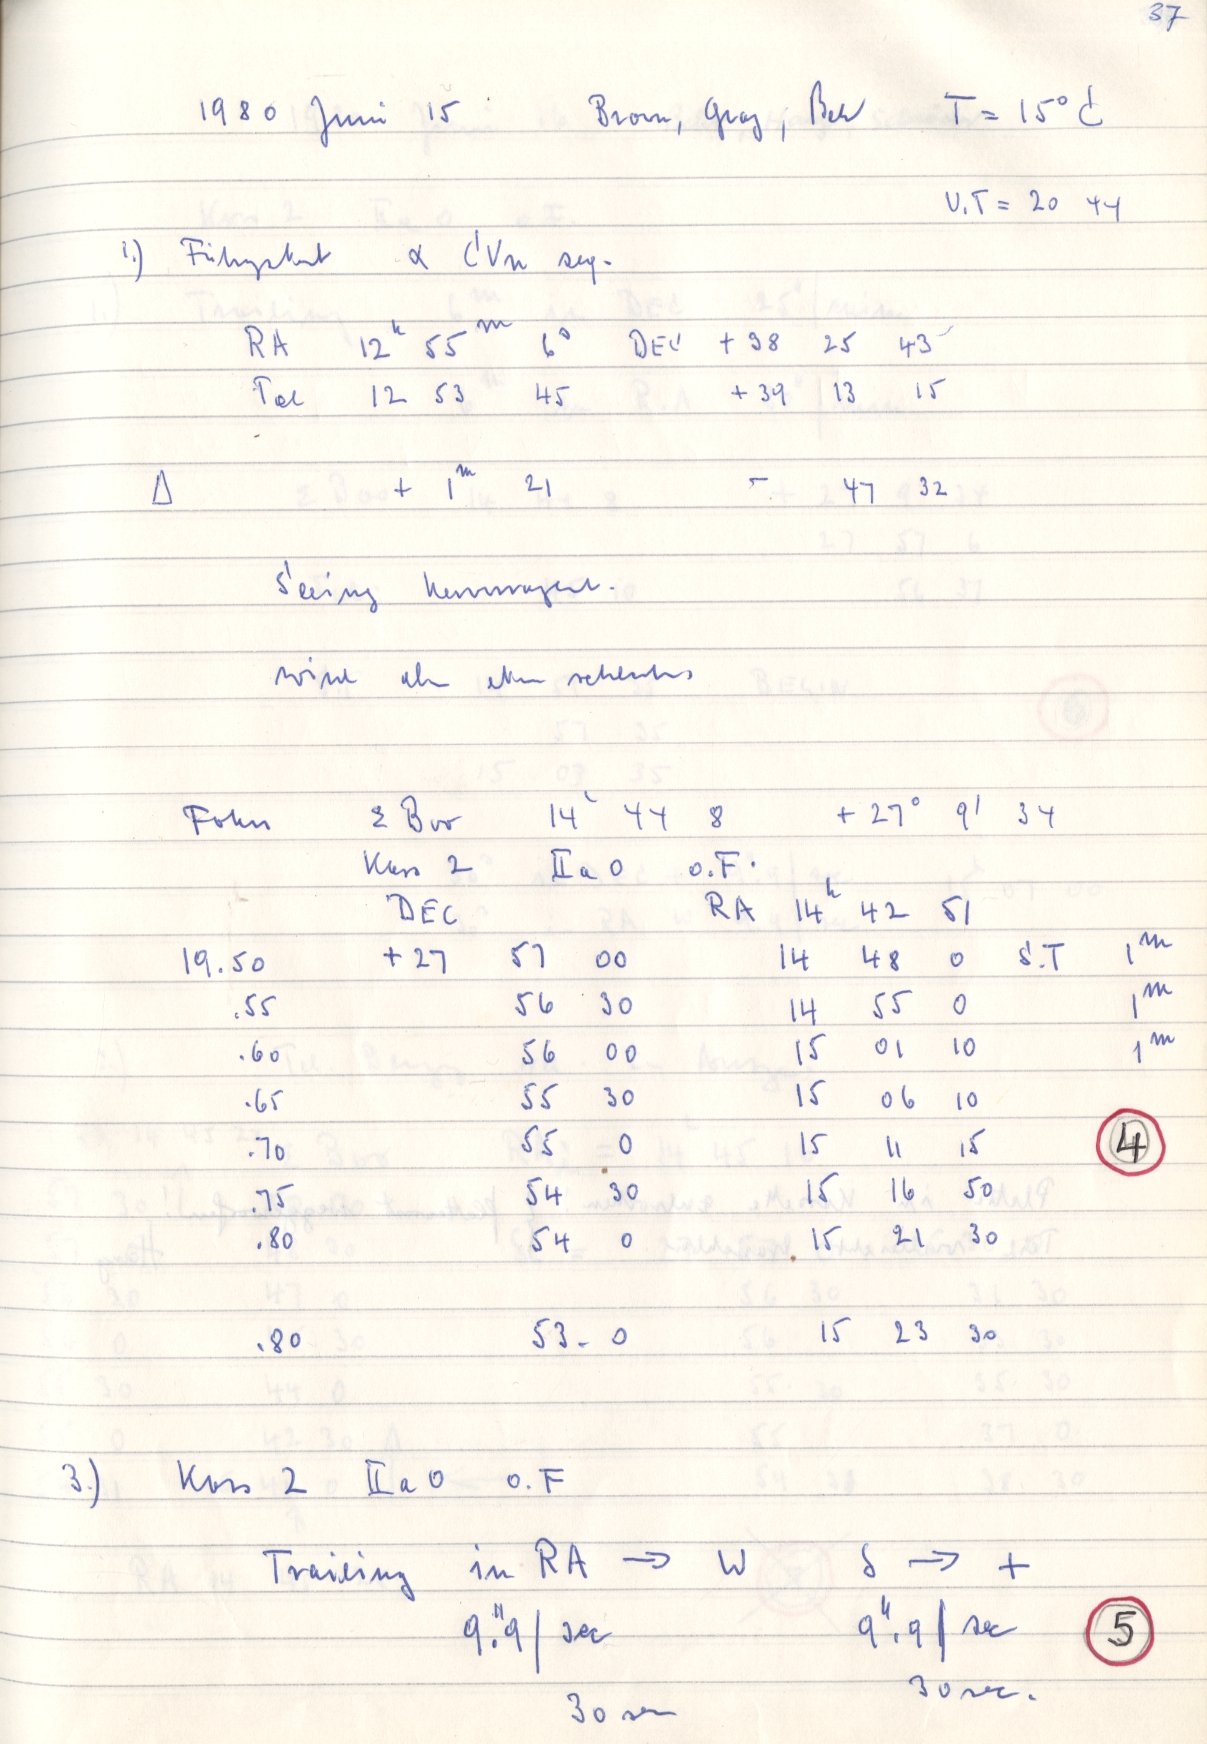 37
1980 Juni 15 T = 15° C
U.T = 20 44
1.) α CVn seq.
RA 12h 55m 6s DEC +38 25 43
Tel 12 53 45 +39 13 15
Δ + 1m 21 - 47 32
Seeing hervorragend.
wird aber eher schlechter
Fokus ε Boo 14h 44 8 +27° 9' 34
Kass 2 IIaO o.F.
DEC RA 14h 42 51
19.50 +27 57 00 14 48 0 S.T 1m
.55 56 30 14 55 0 1m
.60 56 00 15 01 10 1m
.65 55 30 15 06 10
.70 55 0 15 11 15 4
.75 54 30 15 16 50
.80 54 0 15 21 30
.80 53 - 0 15 23 30
3.) Kass 2 IIaO o.F
Trailing in RA → W δ → +
9".9/sec 9".9/sec 5
30 sec 30 sec.